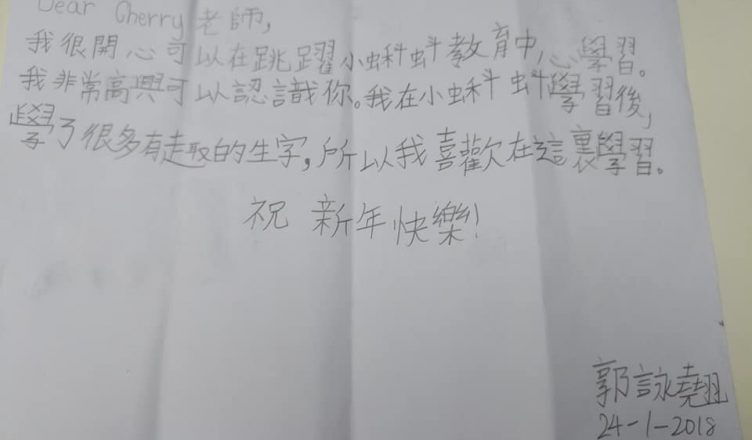 Dear Cherry 老師,
我很開心可以在跳躍小蝌蚪教育中心學習。
我非常高興可以認識你。我在小蝌蚪學習後,
學了很多有趣的生字,所以我喜歡在這裏學習。
祝 新年快樂!
郭詠翹
24-1-2018